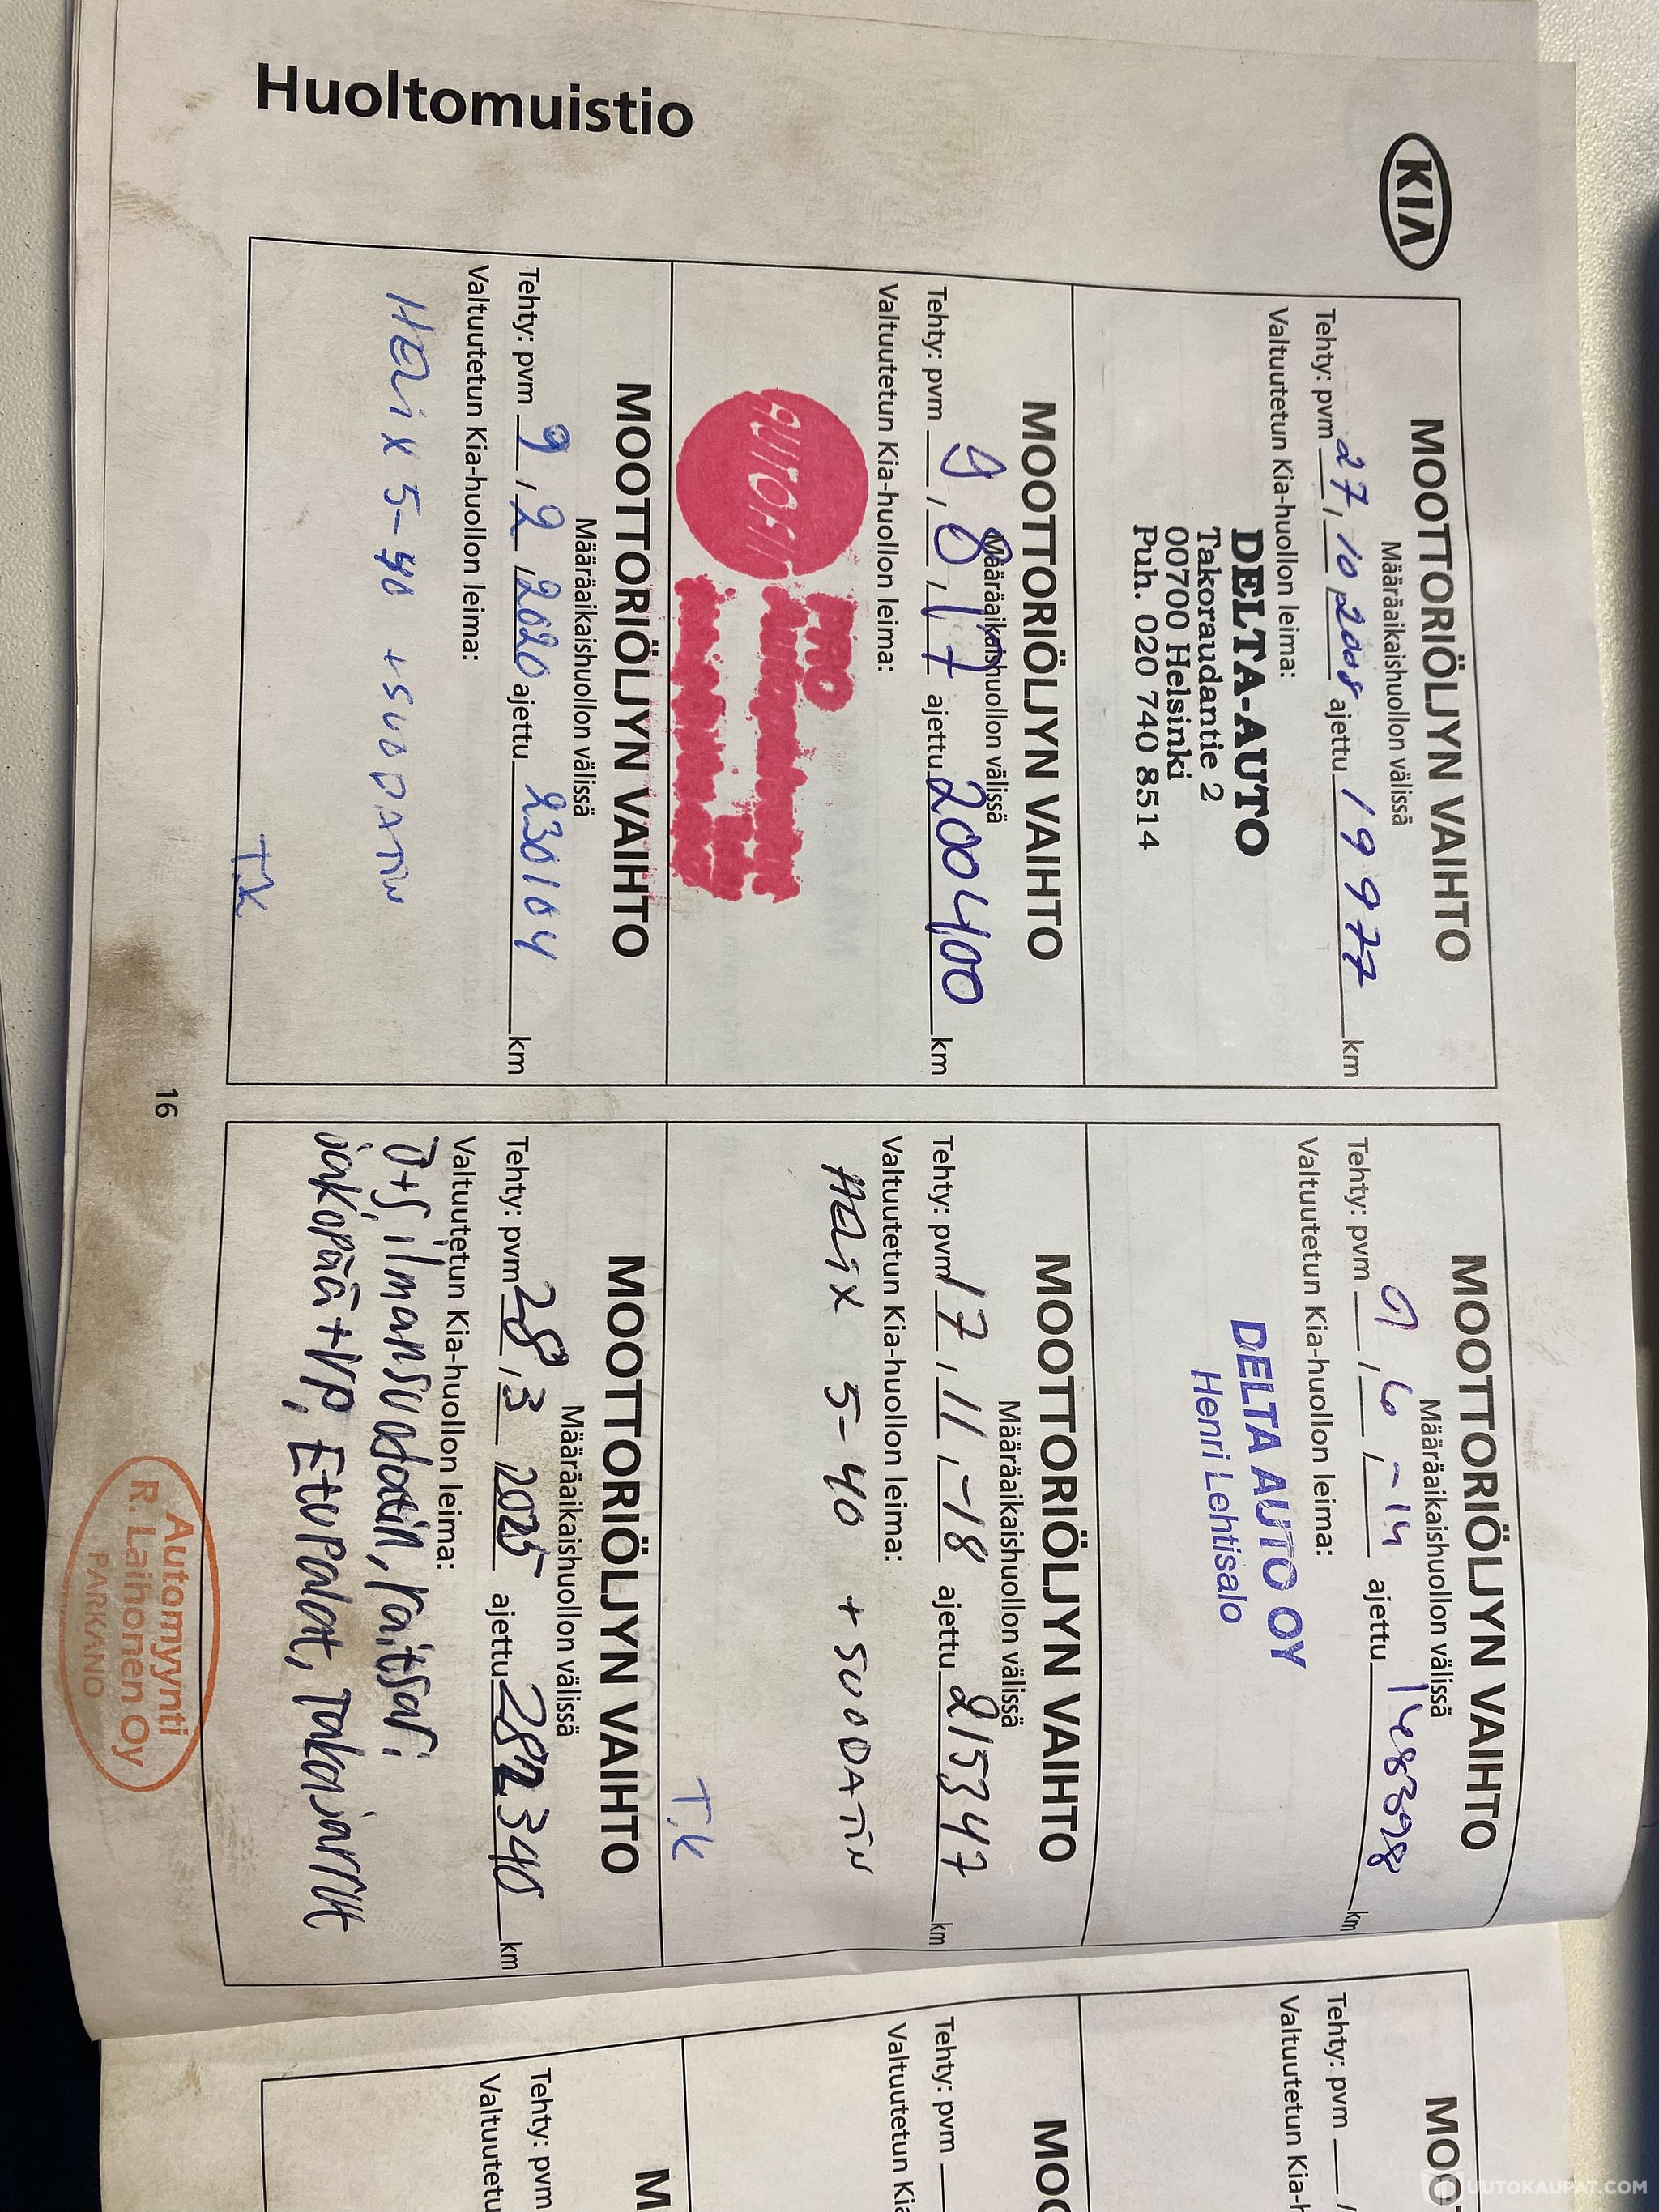 KIA
Huoltomuistio
MOOTTORIÖLJYN VAIHTO
Määräaikaishuollon välissä
Tehty: pvm 27, 10 2008 ajettu 19977 km
Valtuutetun Kia-huollon leima:
DELTA-AUTO
Takoraudantie 2
00700 Helsinki
Puh. 020 740 8514
MOOTTORIÖLJYN VAIHTO
Määräaikaishuollon välissä
Tehty: pvm 9, 6, -14 ajettu km
Valtuutetun Kia-huollon leima:
DELTA AUTO OY
Henri Lehtisalo
MOOTTORIÖLJYN VAIHTO
Määräaikaishuollon välissä
Tehty: pvm 9, 8, 17 ajettu 200400 km
Valtuutetun Kia-huollon leima:
PRO
MOOTTORIÖLJYN VAIHTO
Määräaikaishuollon välissä
Tehty: pvm 17, 11, -18 ajettu 215347 km
Valtuutetun Kia-huollon leima:
HELIX 5-40 + SUODATIN
T.K
MOOTTORIÖLJYN VAIHTO
Määräaikaishuollon välissä
Tehty: pvm 9, 2, 2020 ajettu 230104 km
Valtuutetun Kia-huollon leima:
HELIX 5-40 + SUODATIN
T.K
MOOTTORIÖLJYN VAIHTO
Määräaikaishuollon välissä
Tehty: pvm 28, 3, 2025 ajettu 282340 km
Valtuutetun Kia-huollon leima:
Ö+S, ilmansuodatin, raitisar;
jakopää+VP, Etupalat, Takajarrut
Automyynti
R. Laihonen Oy
PARKANO
16
MOO
Tehty: pvm /
Valtuutetun Kia-h
MOO
Tehty: pvm
Valtuutetun Kia
M
Tehty: pvm
Valtuutetu
UUTOKAUPAT.COM